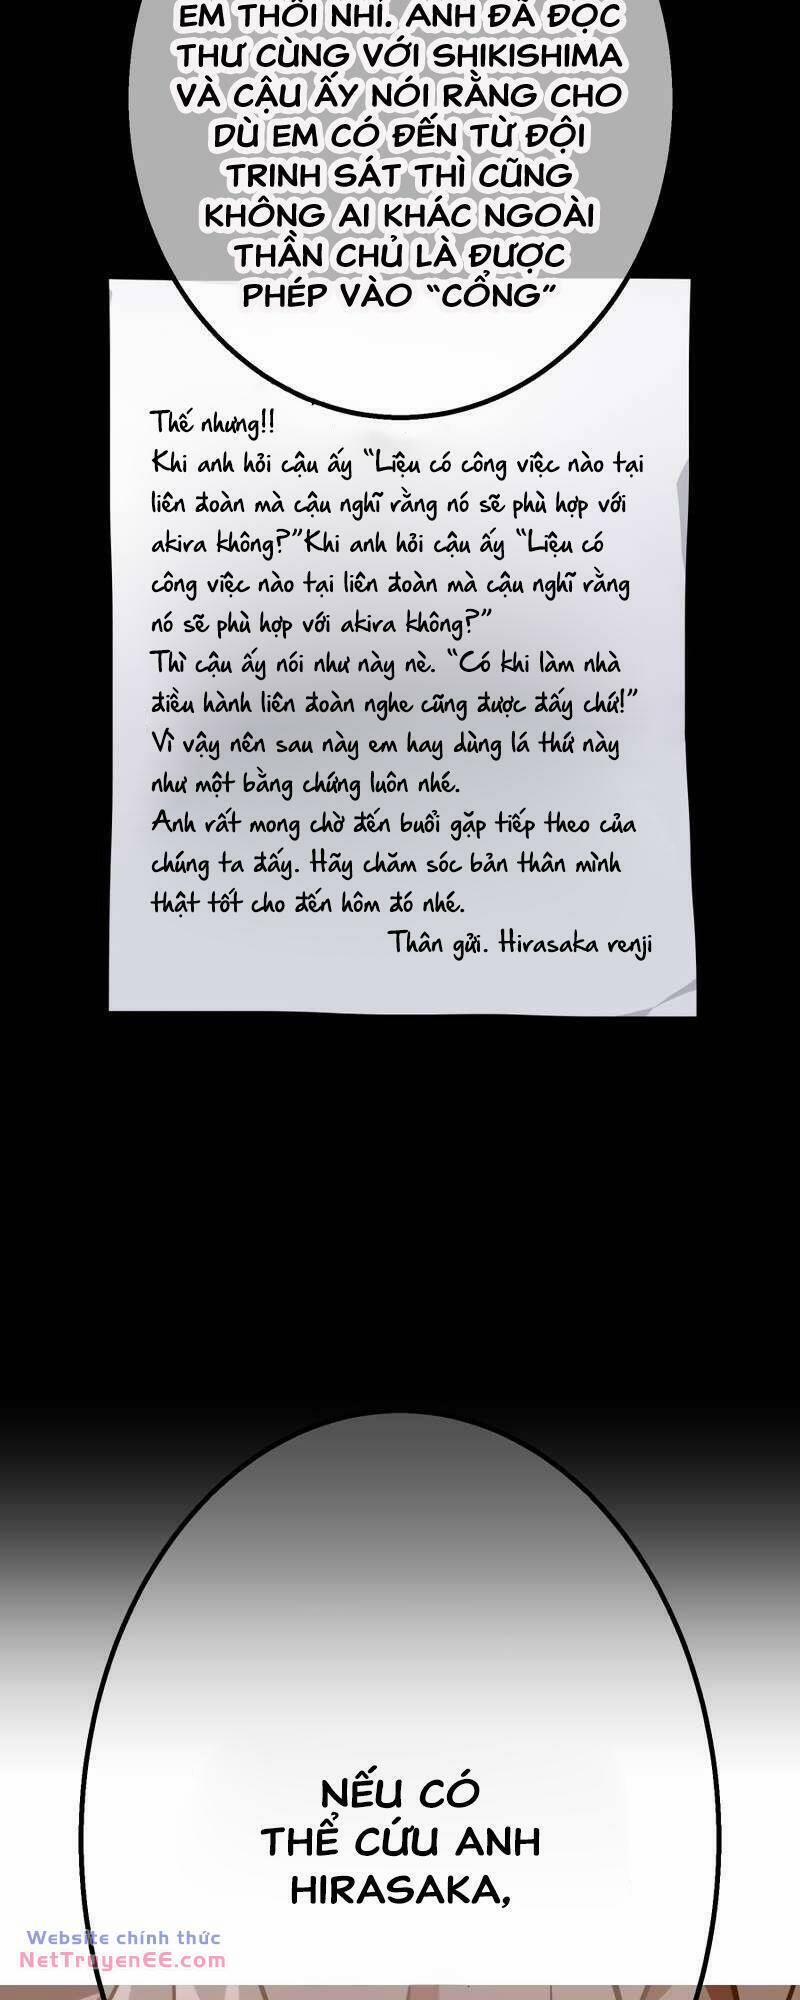 EM THÔI NHỈ. ANH ĐÃ ĐỌC
THƯ CÙNG VỚI SHIKISHIMA
VÀ CẬU ẤY NÓI RẰNG CHO
DÙ EM CÓ ĐẾN TỪ ĐỘI
TRINH SÁT THÌ CŨNG
KHÔNG AI KHÁC NGOÀI
THẦN CHỦ LÀ ĐƯỢC
PHÉP VÀO “CỔNG”
Thế nhưng!!
Khi anh hỏi cậu ấy “Liệu có công việc nào tại
liên đoàn mà cậu nghĩ rằng nó sẽ phù hợp với
akira không?”Khi anh hỏi cậu ấy “Liệu có
công việc nào tại liên đoàn mà cậu nghĩ rằng
nó sẽ phù hợp với akira không?”
Thì cậu ấy nói như này nè. “Có khi làm nhà
điều hành liên đoàn nghe cũng được đấy chứ!”
Vì vậy nên sau này em hay dùng lá thứ này
như một bằng chứng luôn nhé.
Anh rất mong chờ đến buổi gặp tiếp theo của
chúng ta đấy. Hãy chăm sóc bản thân mình
thật tốt cho đến hôm đó nhé.
Thân gửi. Hirasaka renji
NẾU CÓ
THỂ CỨU ANH
HIRASAKA,
Website chính thức
NetTruyenEE.com